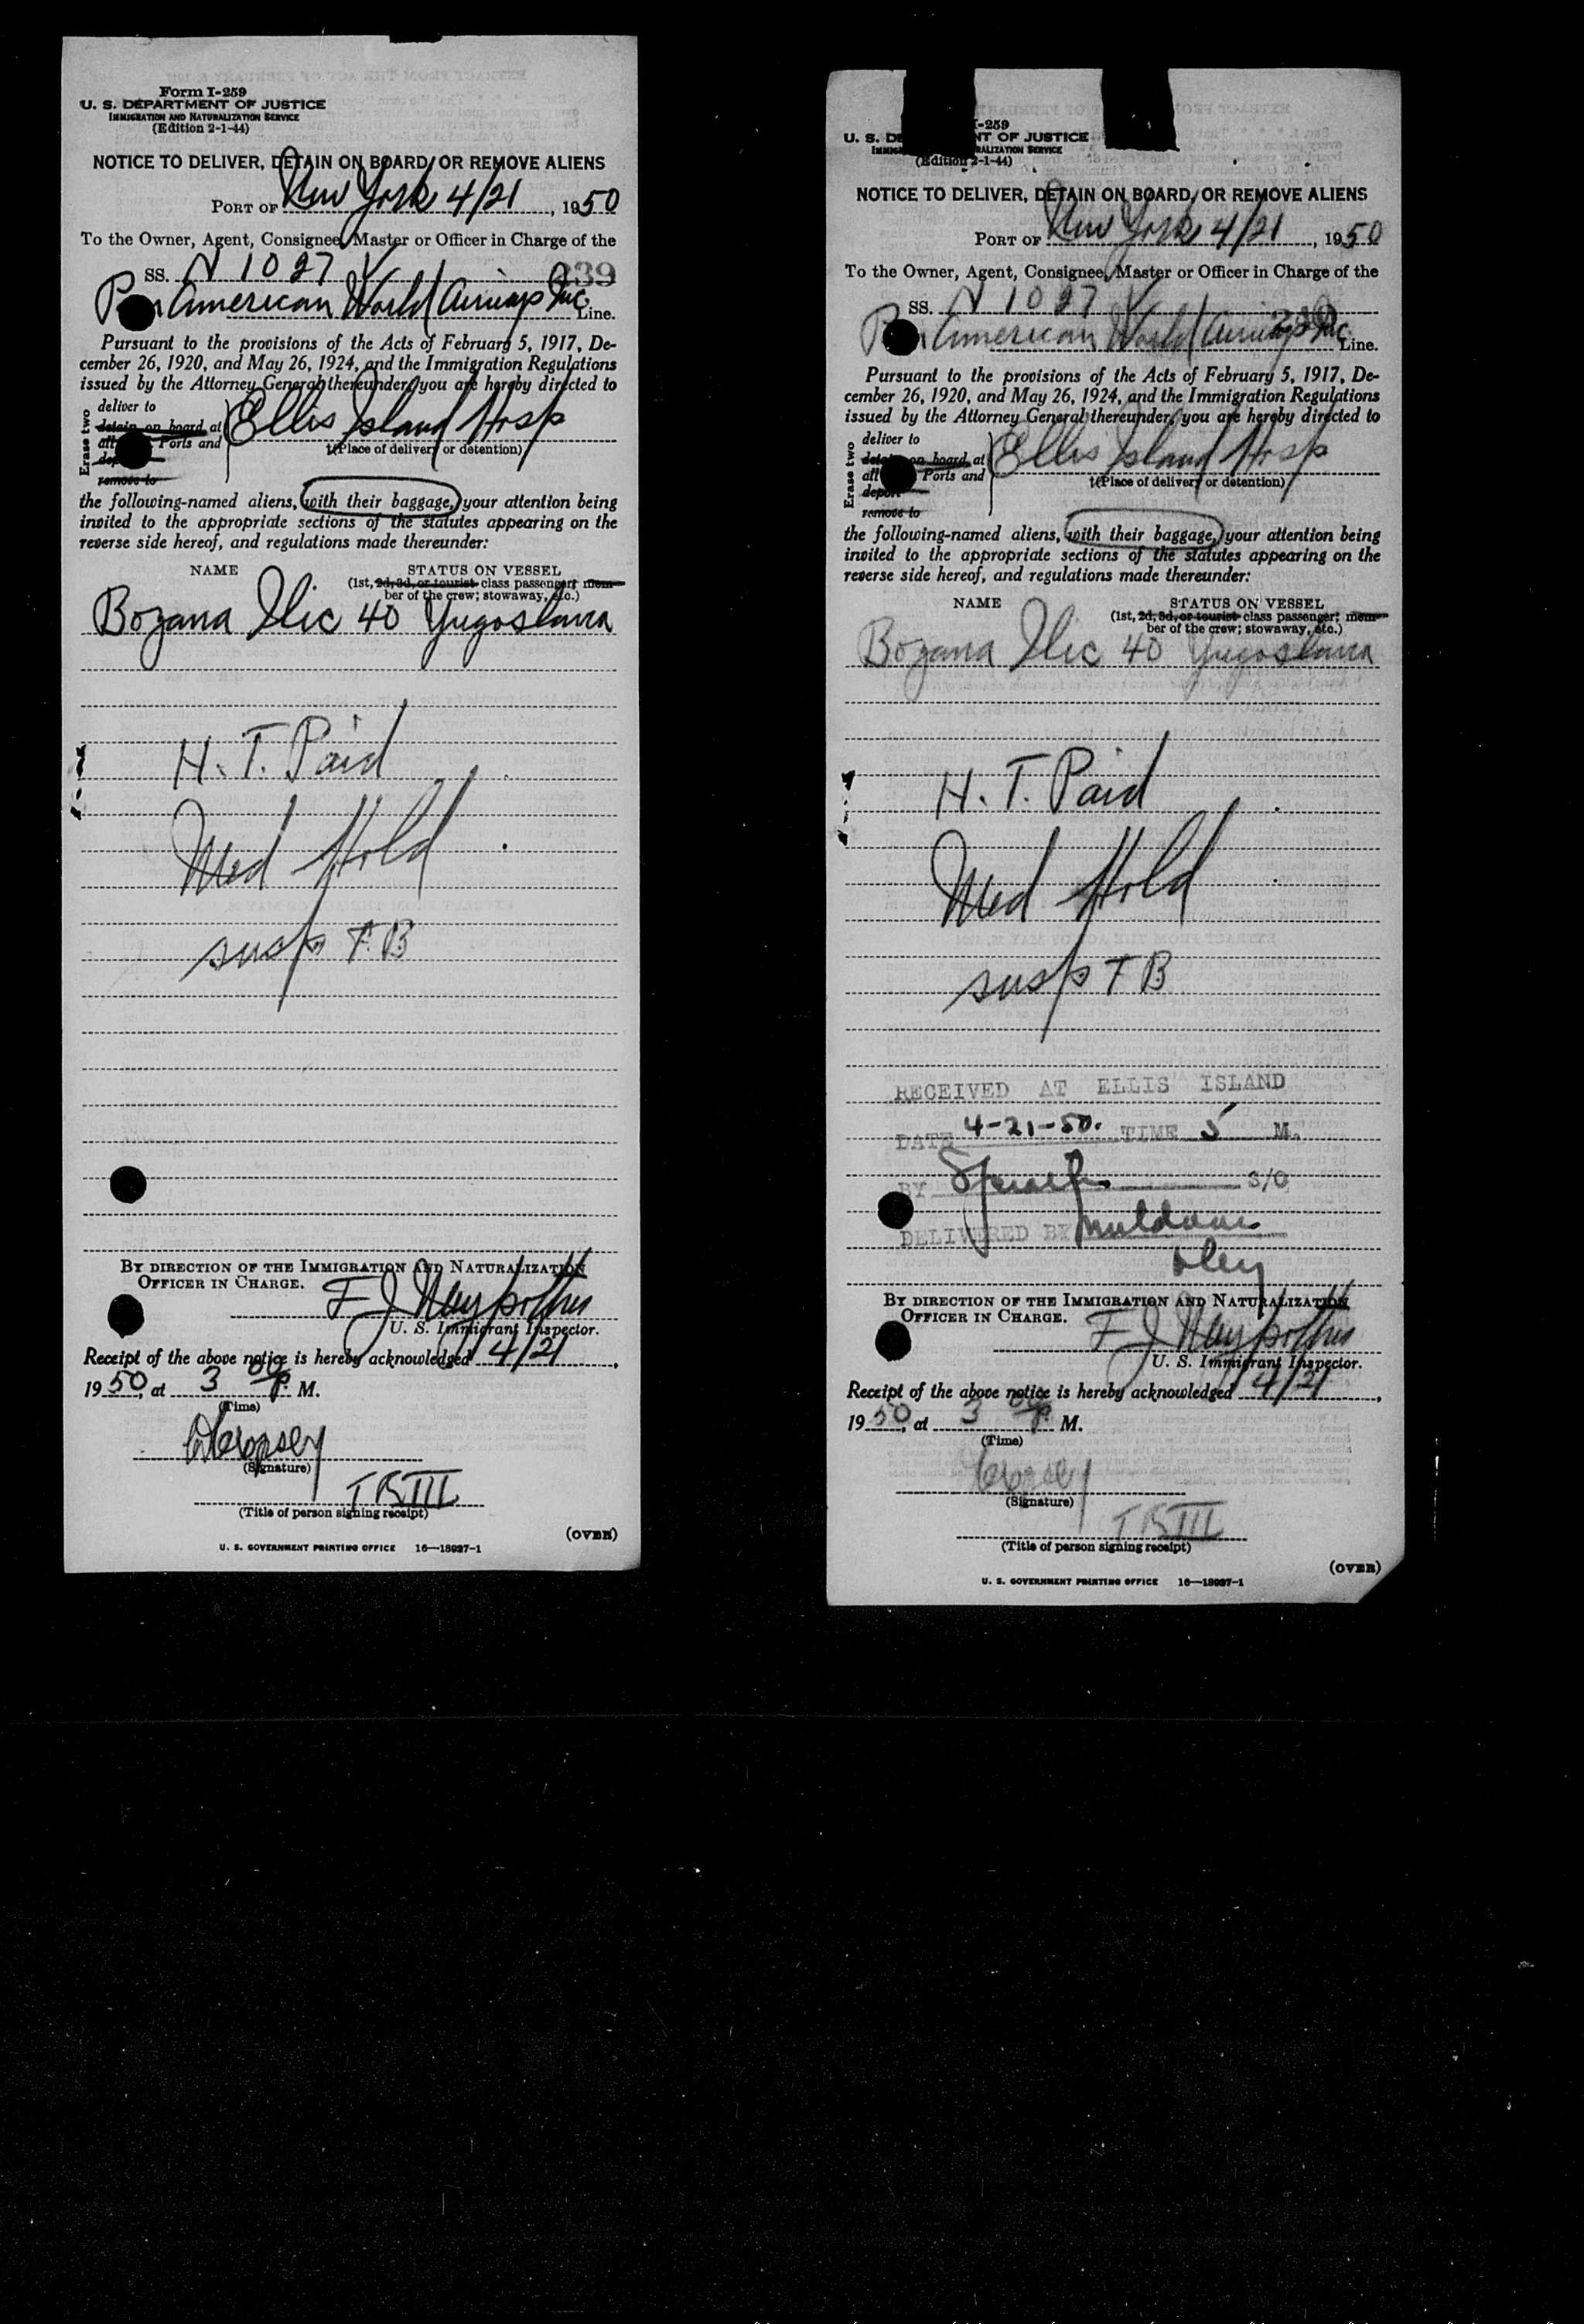 Form I-259
U. S. DEPARTMENT OF JUSTICE
IMMIGRATION AND NATURALIZATION SERVICE
(Edition 2-1-44)
NOTICE TO DELIVER, DETAIN ON BOARD, OR REMOVE ALIENS
PORT OF New York 4/21, 1950
To the Owner, Agent, Consignee, Master or Officer in Charge of the
SS. N 1027 V 239
American World Airways Inc. Line.
Pursuant to the provisions of the Acts of February 5, 1917, De-
cember 26, 1920, and May 26, 1924, and the Immigration Regulations
issued by the Attorney General thereunder, you are hereby directed to
Erase two
deliver to
detain on board at
all Ports and
remove to
Ellis Island Hosp
†(Place of delivery or detention)
the following-named aliens, with their baggage, your attention being
invited to the appropriate sections of the statutes appearing on the
reverse side hereof, and regulations made thereunder:
NAME STATUS ON VESSEL
(1st, 2d, 3d, or tourist class passenger; mem-
ber of the crew; stowaway, etc.)
Bozana Ilic 40 Yugoslavia
H. T. Paid
Med Hold
susp TB
BY DIRECTION OF THE IMMIGRATION AND NATURALIZATION
OFFICER IN CHARGE.
F J
U. S. Immigrant Inspector.
Receipt of the above notice is hereby acknowledged 4/21,
1950, at 3 00 P. M.
(Time)
(Signature)
(Title of person signing receipt)
(OVER)
U. S. GOVERNMENT PRINTING OFFICE 16—18027-1
I-259
U. S. DE NT OF JUSTICE
(Edition 2-1-44)
NOTICE TO DELIVER, DETAIN ON BOARD, OR REMOVE ALIENS
PORT OF New York 4/21, 1950
To the Owner, Agent, Consignee, Master or Officer in Charge of the
SS. N 1027 V
American World Airways Inc. Line.
Pursuant to the provisions of the Acts of February 5, 1917, De-
cember 26, 1920, and May 26, 1924, and the Immigration Regulations
issued by the Attorney General thereunder, you are hereby directed to
Erase two
deliver to
detain on board at
all Ports and
deport
remove to
Ellis Island Hosp
†(Place of delivery or detention)
the following-named aliens, with their baggage, your attention being
invited to the appropriate sections of the statutes appearing on the
reverse side hereof, and regulations made thereunder:
NAME STATUS ON VESSEL
(1st, 2d, 3d, or tourist class passenger; mem-
ber of the crew; stowaway, etc.)
Bozana Ilic 40 Yugoslavia
H. T. Paid
Med Hold
susp TB
RECEIVED AT ELLIS ISLAND
DATE 4-21-50. TIME 5 M.
BY S/O
DELIVERED BY
BY DIRECTION OF THE IMMIGRATION AND NATURALIZATION
OFFICER IN CHARGE.
F J
U. S. Immigrant Inspector.
Receipt of the above notice is hereby acknowledged 4/21,
1950, at 3 00 P. M.
(Time)
(Signature)
(Title of person signing receipt)
(OVER)
U. S. GOVERNMENT PRINTING OFFICE 16—18027-1